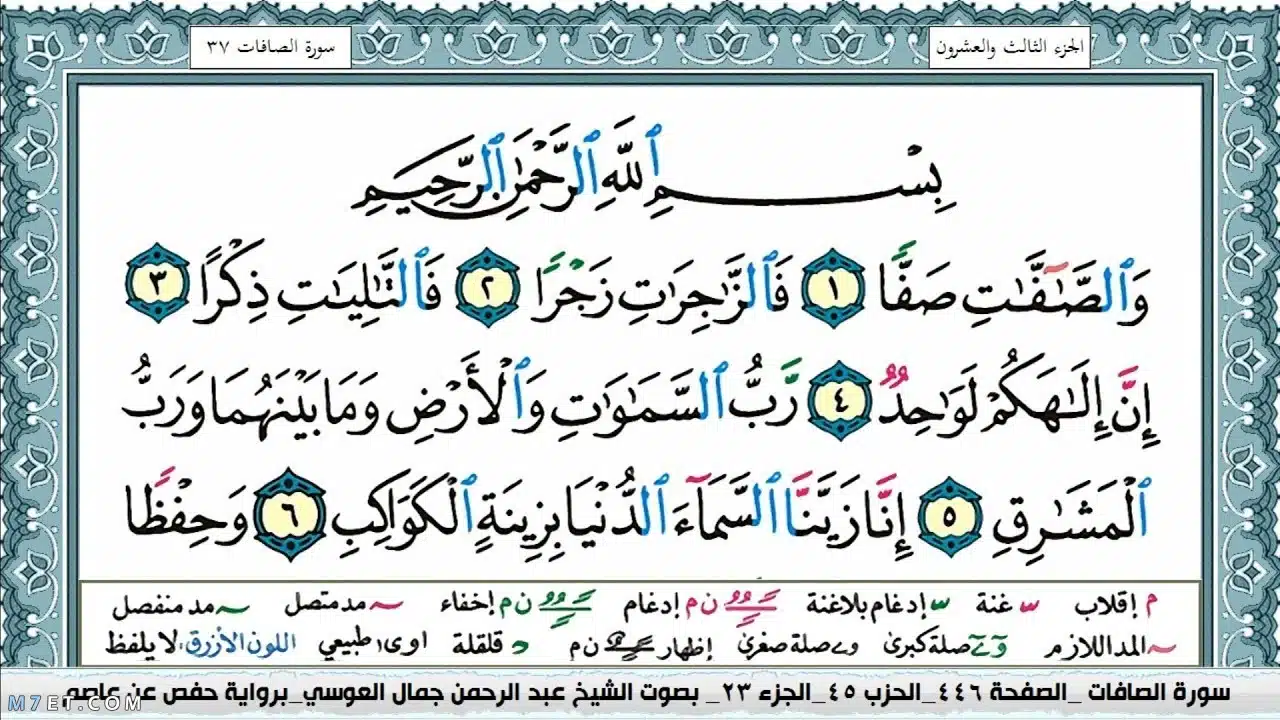 الجزء الثالث والعشرون
سورة الصافات ٣٧
بِسْمِ ٱللَّهِ ٱلرَّحْمَٰنِ ٱلرَّحِيمِ
وَٱلصَّٰٓفَّٰتِ صَفًّا ١ فَٱلزَّٰجِرَٰتِ زَجْرًا ٢ فَٱلتَّٰلِيَٰتِ ذِكْرًا ٣
إِنَّ إِلَٰهَكُمْ لَوَٰحِدٌ ٤ رَّبُّ ٱلسَّمَٰوَٰتِ وَٱلْأَرْضِ وَمَا بَيْنَهُمَا وَرَبُّ
ٱلْمَشَٰرِقِ ٥ إِنَّا زَيَّنَّا ٱلسَّمَآءَ ٱلدُّنْيَا بِزِينَةٍ ٱلْكَوَاكِبِ ٦ وَحِفْظًا
م إقلاب س غنة س إدغام بلاغنة ن م إدغام ن م إخفاء مد متصل مد منفصل
المد اللازم صلة كبرى وے صلة صغرى إظهار ن م د قلقلة اوى طبيعي اللون الأزرق لا يلفظ
سورة الصافات _الصفحة ٤٤٦_الحزب ٤٥_الجزء ٢٣_ بصوت الشيخ عبد الرحمن جمال العوسي_برواية حفص عن عاصم
M7ET.COM